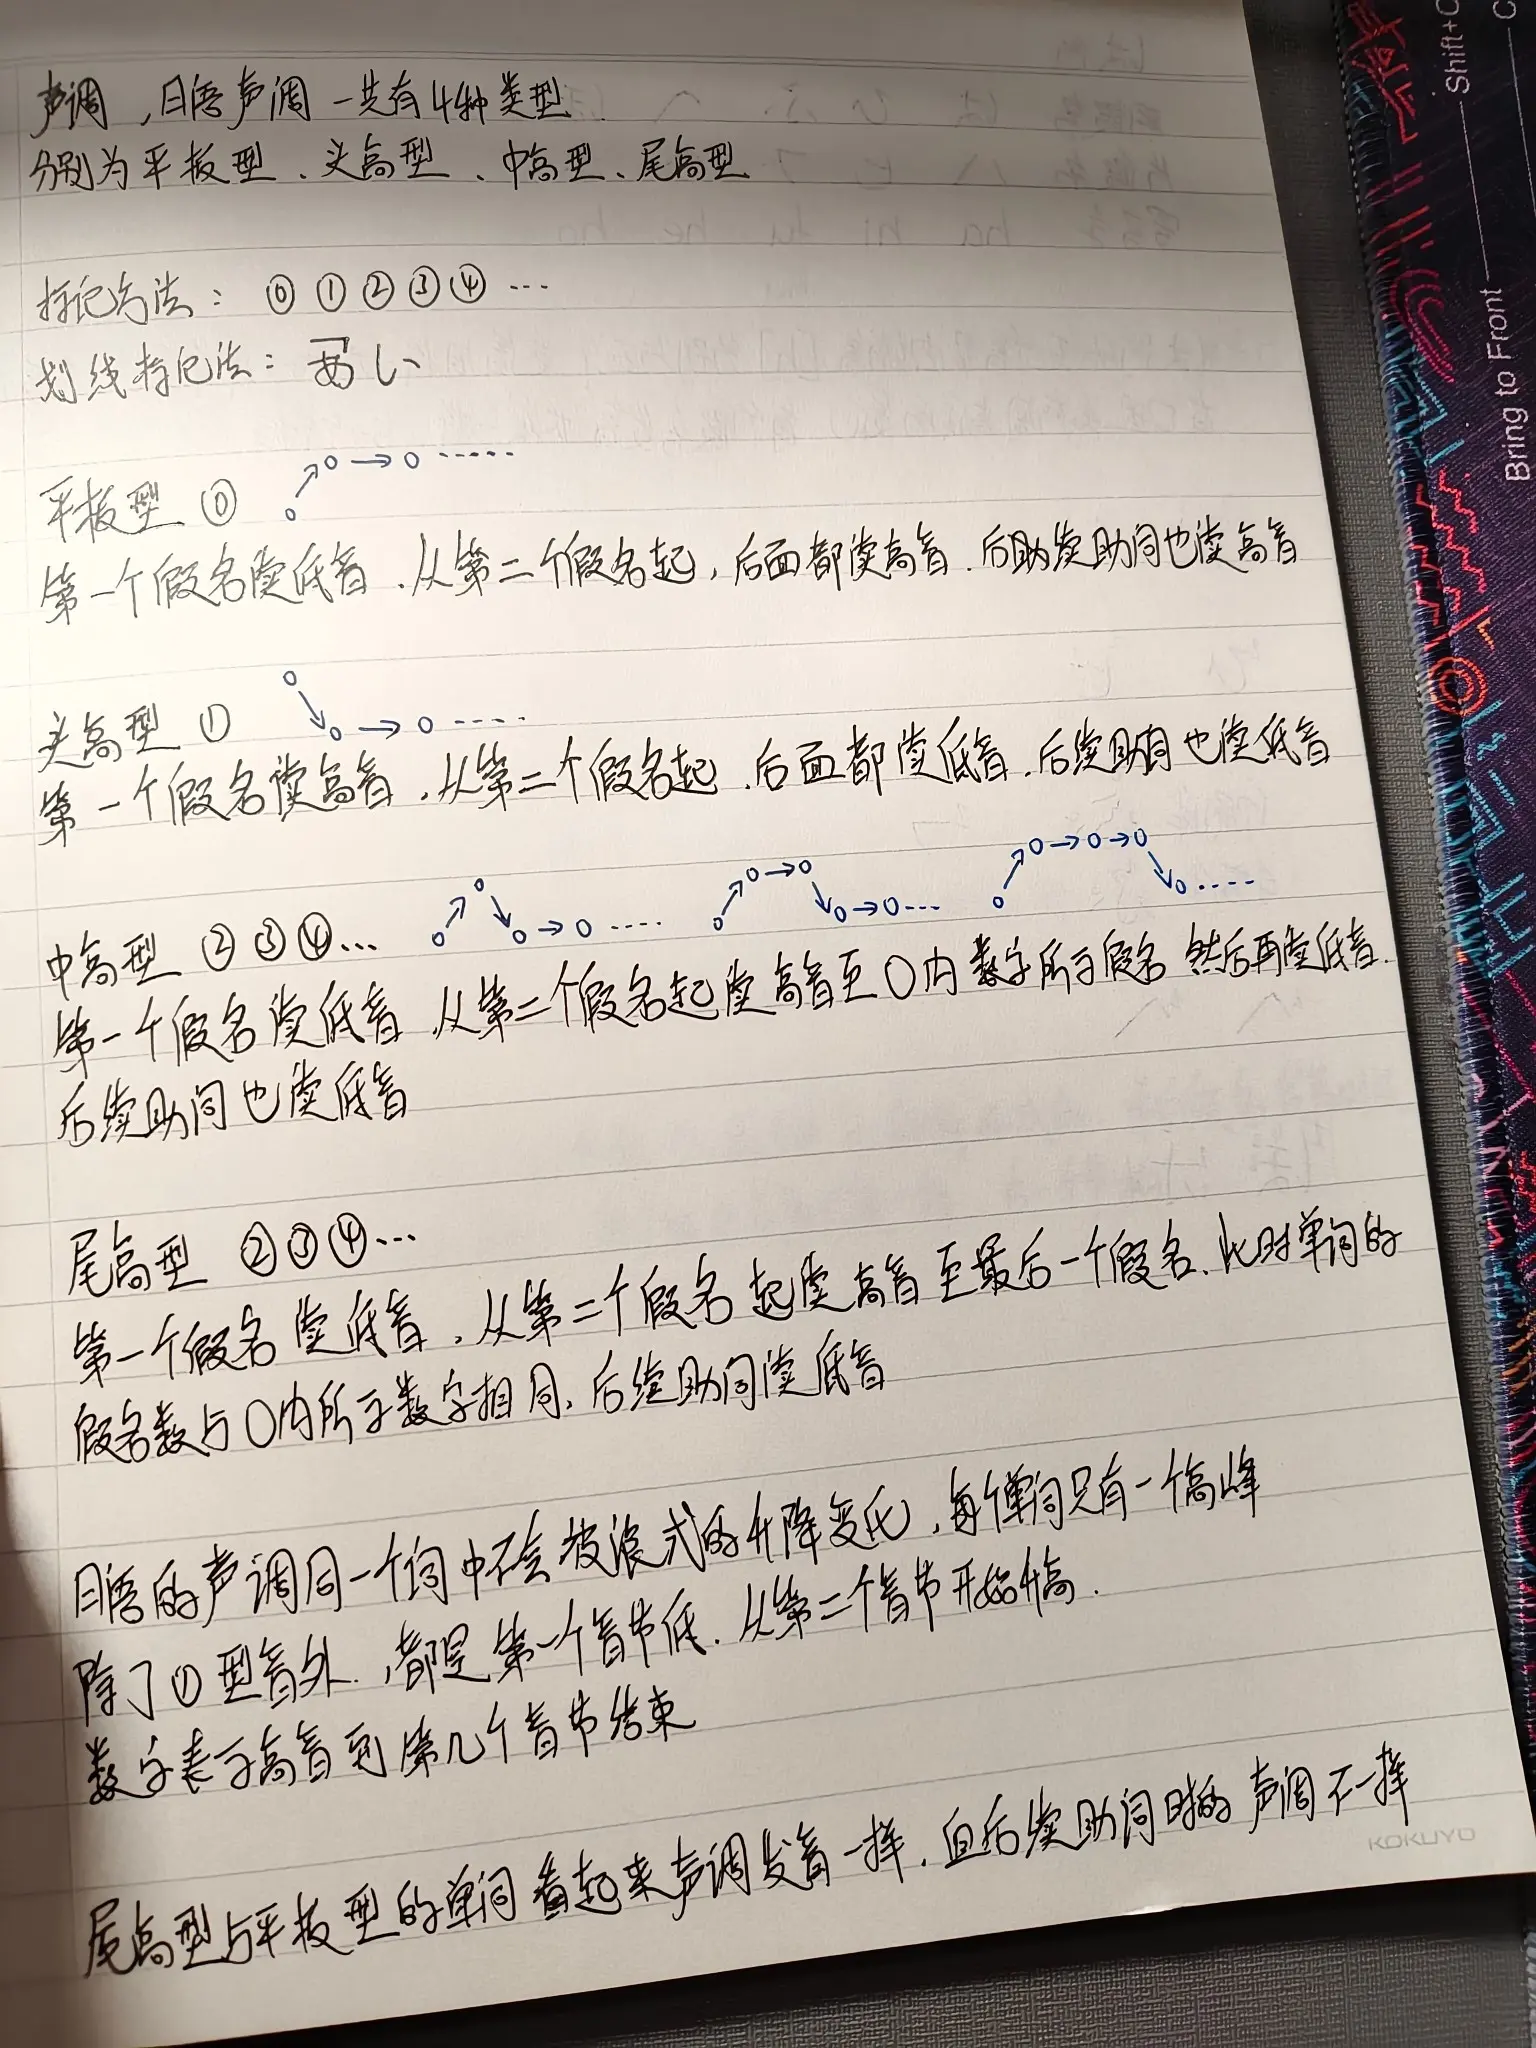 声调，日语声调一共有4种类型
分别为平板型、头高型、中高型、尾高型
标记方法：⓪①②③④…
划线标记法：あし
平板型 ⓪
第一个假名读低音．从第二个假名起，后面都读高音．后助续助词也读高音
头高型 ①
第一个假名读高音．从第二个假名起．后面都读低音．后续助词也读低音
中高型 ②③④…
第一个假名读低音．从第二个假名起读高音至○内数字所示假名 然后再读低音．
后续助词也读低音
尾高型 ②③④…
第一个假名读低音．从第二个假名起读高音至最后一个假名．此时单词的
假名数与○内所示数字相同．后续助词读低音
日语的声调同一个词中不会波浪式的升降变化，每个单词只有一个高峰
除了①型音外，都是第一个音节低．从第二个音节开始升高．
数字表示高音到第几个音节结束
尾高型与平板型的单词看起来声调发音一样．但后续助词时的声调不一样
KOKUYO
Shift+C
Bring to Front